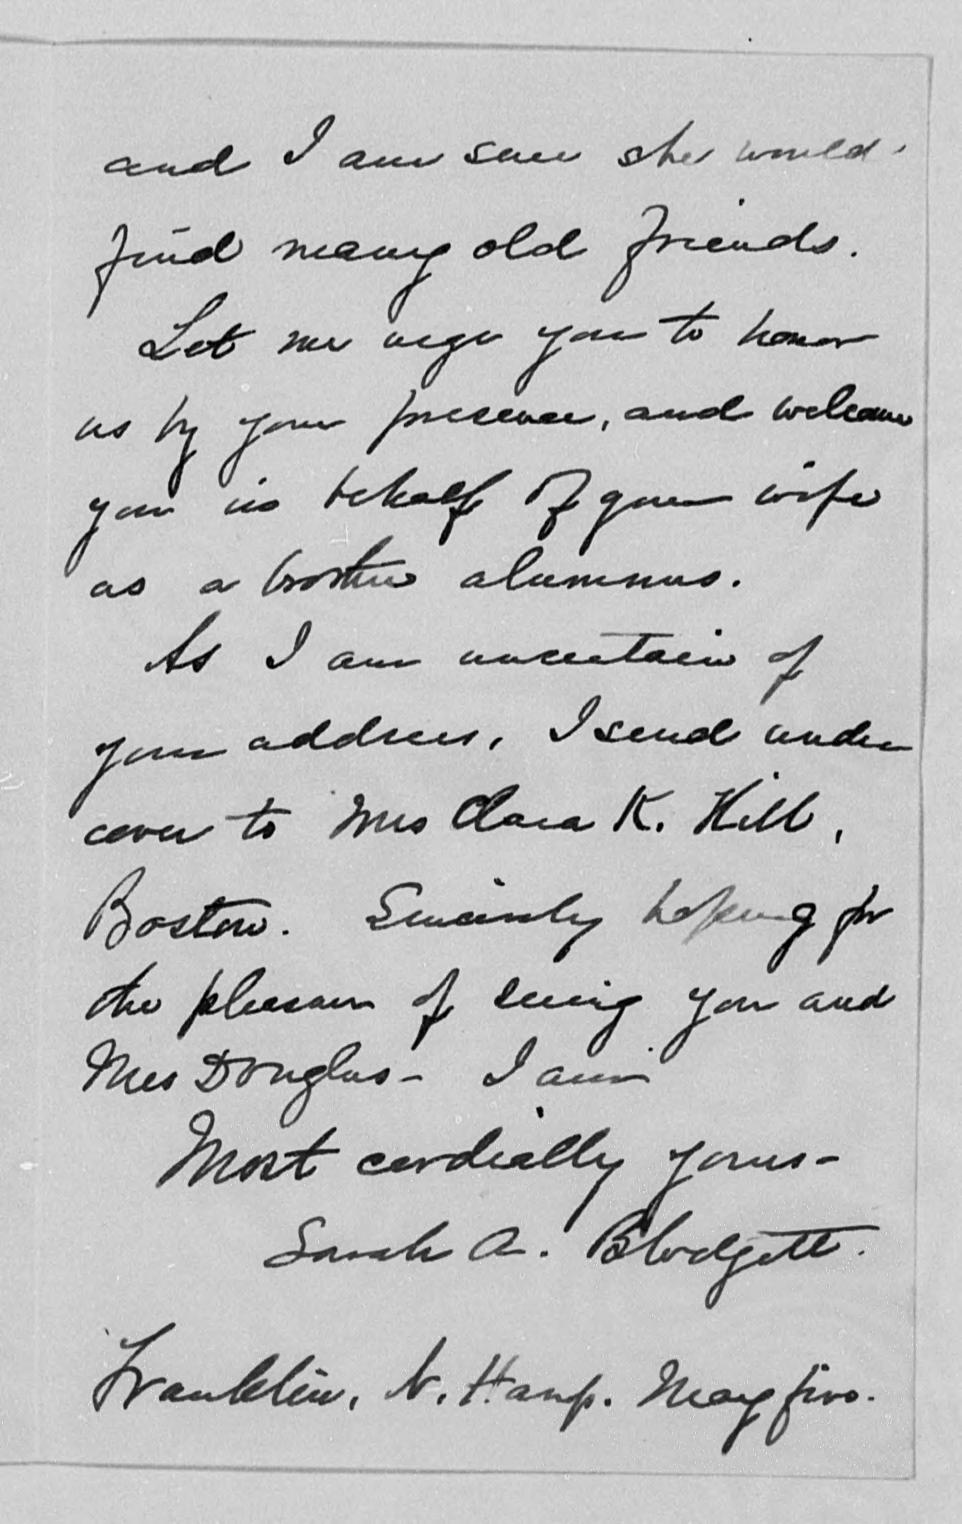 and I am sure she would
find many old friends.
Let me urge you to honor
us by your presence, and welcome
you in behalf of your wife
as a brother alumnus.
As I am uncertain of
your address, I send under
cover to Mrs Clara K. Hill,
Boston. Sincerely hoping for
the pleasure of seeing you and
Mrs Douglas - I am
Most cordially yours -
Sarah A. Blodgett.
Franklin, N. Hamp. May five.